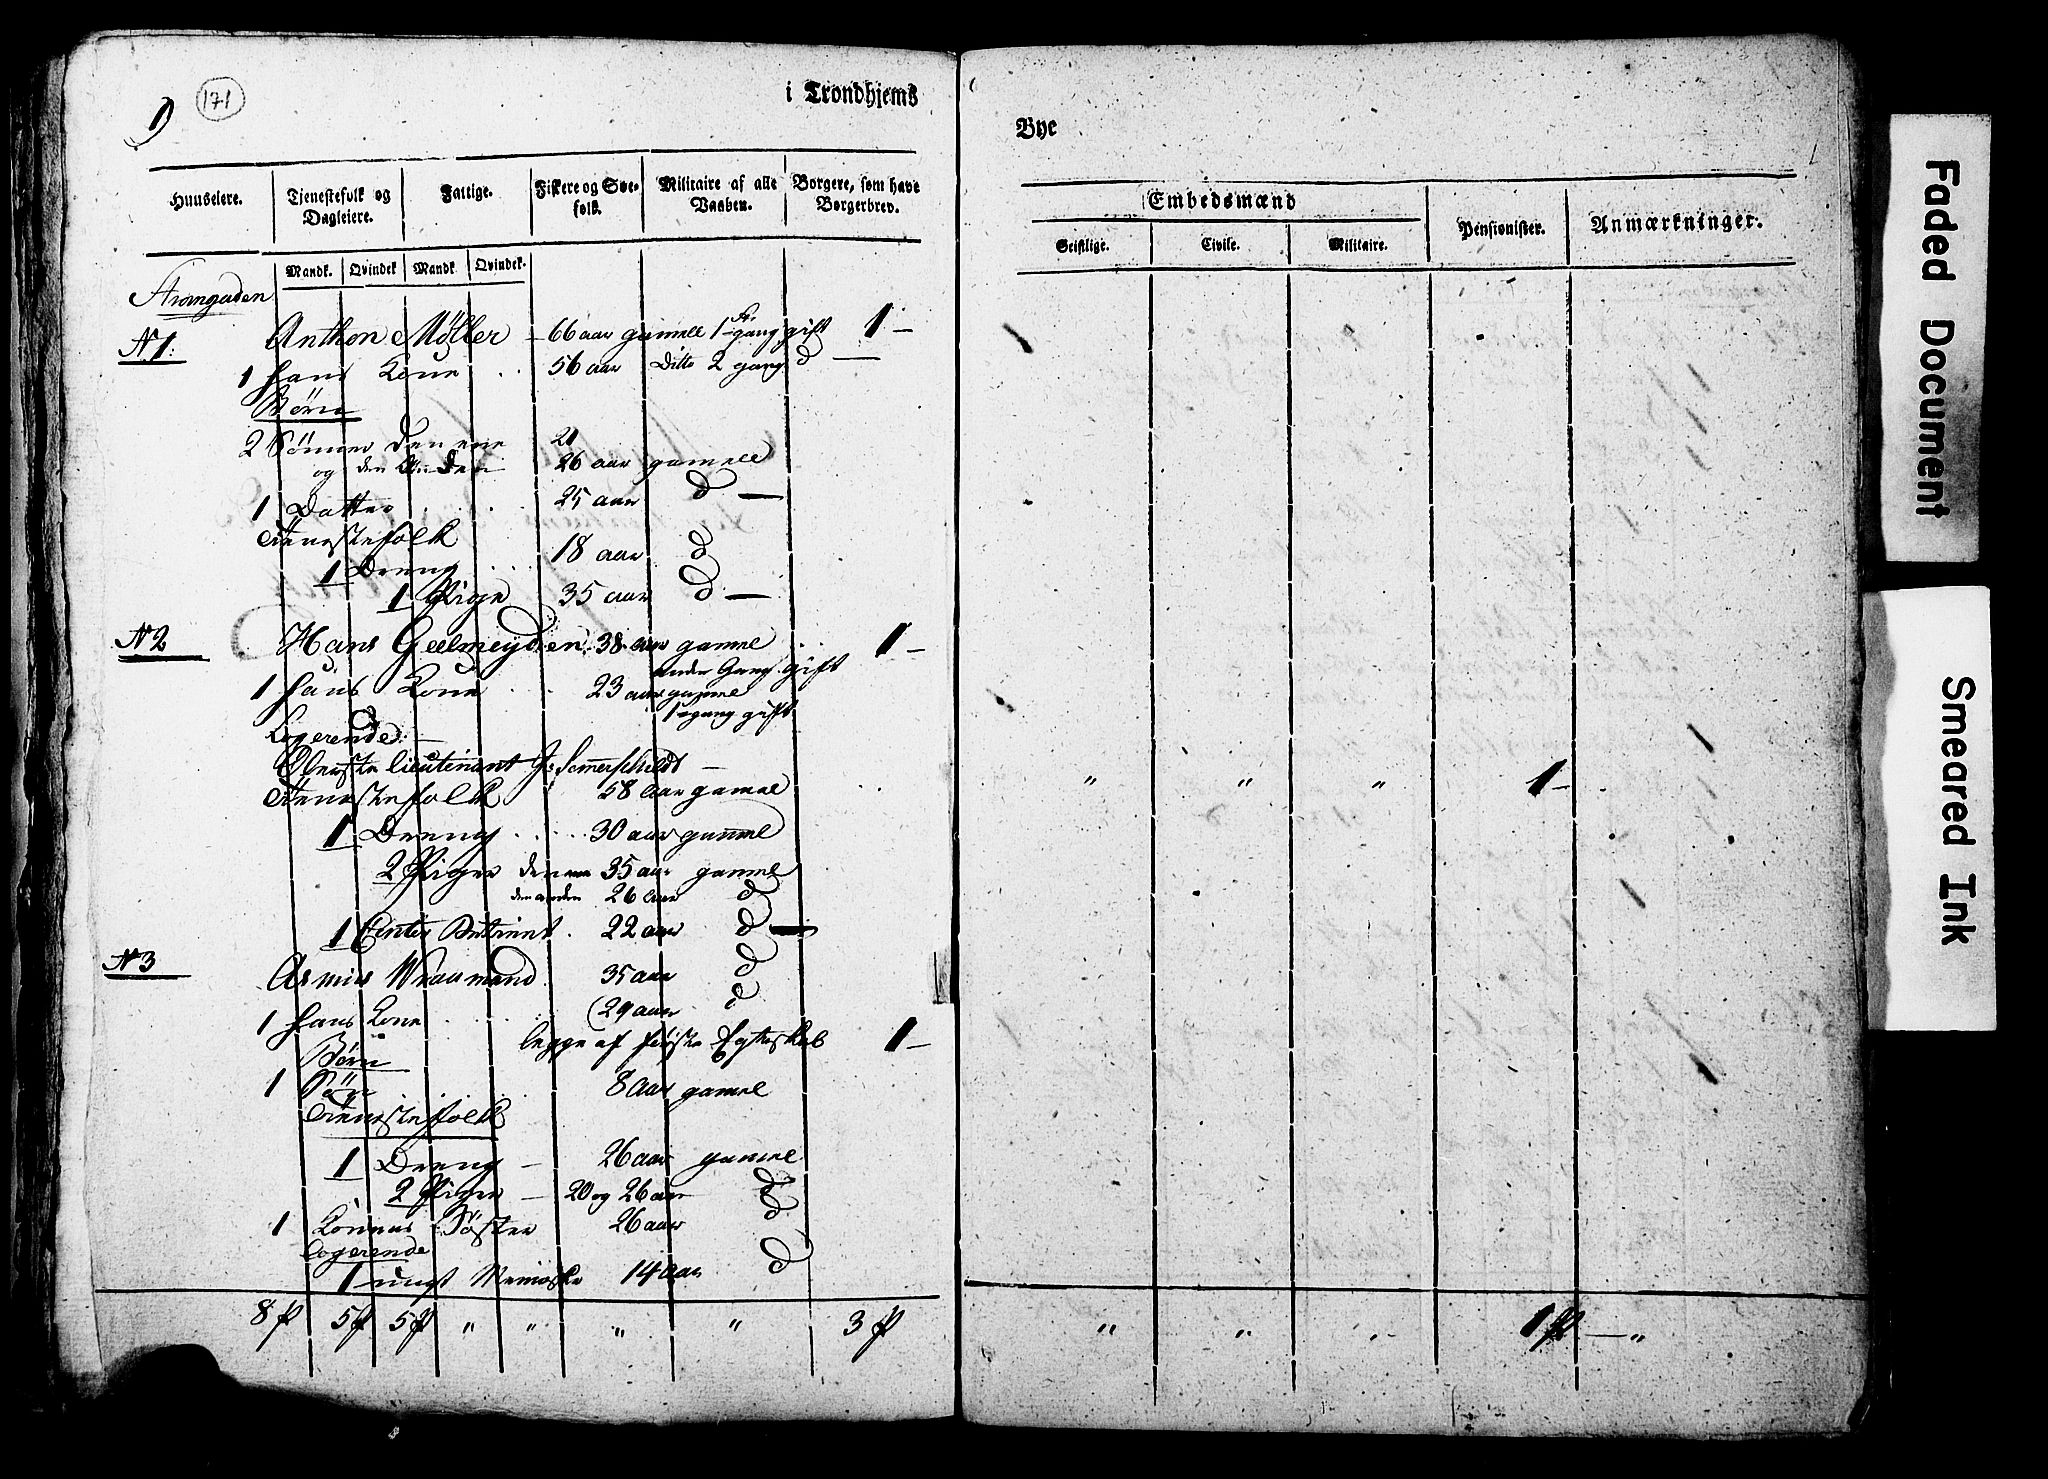 171
9
i Trondhjems
Bye
Huuseiere.
Tjenestefolk og Dagleiere.
Fattige.
Fiskere og Søefolk.
Militaire af alle Vaaben.
Borgere, som have Borgerbrev.
Mandk. Qvindek Mandk Qvindek.
Embedsmænd
Geistlige. Civile. Militaire.
Pensionister.
Anmærkninger.
N 1: Anthon Møller - 66 aar gamle 1 gang gift 1 -
1 hans Kone 56 aar Ditto 2 gang d
Børn
2 Sønner den ene 21
og den Anden 26 aar gamle
1 Datter 25 aar d -
Tienestefolk
1 Dreng 18 aar d
1 Pige 35 aar d -
N 2 Hans Geelmeyden 38 aar gamel 1 -
anden Gang gift
1 hans Kone 23 aar gamle
1 gang gift
Logerende
Oberste lieutenant Sommerschildt
58 Aar gamel " " " 1 -
Tienestefolk
1 Dreng 30 aar gammel
2 Piger den ene 35 aar gamel
den anden 26 Aar d
1 22 aar d -
N 3 35 aar d
1 hans Kone 29 aar d
begge af første Egteskab 1 -
Børn
1 8 Aar gamel
Tienestefolk
1 Dreng - 26 aar gamel
2 Piger - 20 og 26 aar d
1 Konens Søster 26 aar d
Logerende
1 ungt Menneske 14 Aar d
8 P 5 P 5 P " " " " 3 P
" " " 1 P - "
Faded Document
Smeared Ink